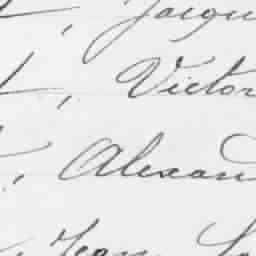 , Jacqu
, Victor
, Alexan
Jean